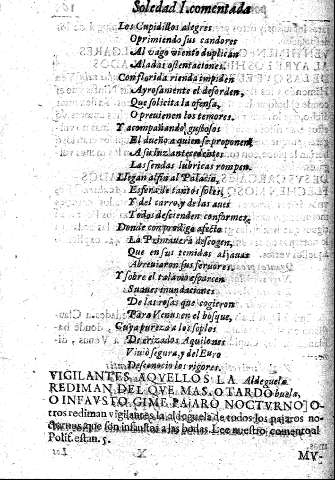 Soledad I. comentada
Los Cupidillos alegres
Oprimiendo sus candores
Al vago viento duplican
Aladas ostentaciones.
Con florida rienda impiden
Ayrosamente el desorden,
Que solicita la ofensa,
O preuienen los temores.
Y acompañando gustosos
El dueño a quien se proponen
A su luz antecedentes
Las sendas lubricas rompen.
Llegan al fin al Palacio,
Esfera de tantos soles,
Y del carro, y de las aues
Todos descienden conformes,
Donde con prodigo afecto
La Primauera descogen,
Que en sus temidas aljauas
Abreuiaron sus feruores.
Y sobre el talamo esparcen
Suaues inundaciones
De las rosas que cogieron
Para Venus en el bosque,
Cuya pureza a los soplos
De erizados Aquilones
Viuio segura, y del Euro
Desconocio los rigores.
VIGILANTES AQUELLOS LA Aldeguela
REDIMAN DEL QVE MAS, O TARDO buela,
O INFAVSTO GIME PAJARO NOCTVRNO] O-
tros rediman vigilantes la aldeguela de todos los pajaros no-
cturnos que son infaustos a las bodas. Lee nuestro comento al
Polif. estan. 5.
X
MV-